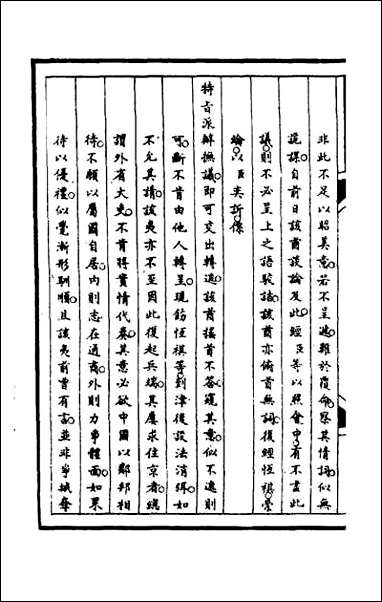 非此不足以昭美意若不呈遞難於覆命察其情詞似無
詭謀自前日該酋談論及此經臣等以照會中有不盡此
議則不必呈上之語駁詰該酋亦俯首無詞復經恆祺等
諭以臣奕訢係
特旨派辦撫議即可交出轉遞該酋搖首不答窺其意似不遞則
可斷不肯由他人轉呈現飭恆祺等到津後設法消弭如
不允其請該夷亦不至因此復起兵端其屢求住京者總
謂外有大吏不肯將實情代奏其意必欲中國以鄰邦相
待不願以屬國自居內則志在通商外則力爭體面如果
待以優禮似覺漸形馴順且該夷前曾有言並非爭城奪